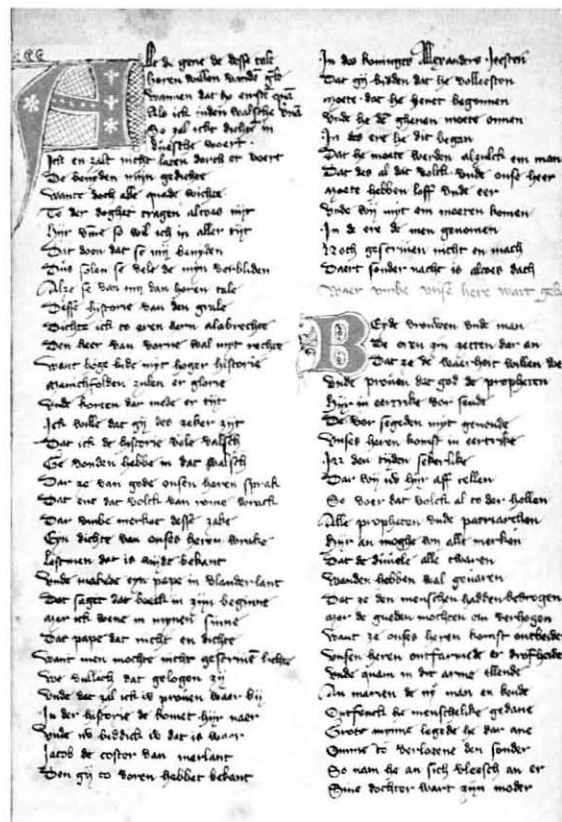 Alle de gene de desse tale
horen willen vanden grale
wannen dat he erste quam
Als ick inden walsche vnam
So zal icket dichte in
duesche woert
Ick en zalt nicht laten dorch er voert
De beniden mijn gedichte
wante doch alle quade wichte
To der doghet tragen altoes nijt
Hijr vme so wil ich in aller tijt
Dat doen dat se mij benyden
Dus solen se vele de myn verbliden
Alze se van my dan horen tale
Desse historie van den grale
Dichte ick to eren hern alabrechte
Den heer van vorne wal myt rechte
want hoge lude myt hoger historie
Manichfolden zulen er glorie
vnde korten dar mede er tijt
Ick wille dat gij des zeker zijt
Dat ick de historie vele valsch
Ge vonden hebbe in dat walsch
Dar ze van gode onsen heren sprak
Dat ene dat volck van rome wrack
Dar vmbe merket desse zake
Eyn dichte van onses heren wrake
Lestmen dat is wijde bekant
vnde makede eyn pape in vlander lant
Dat saget dat boeck in zijn beginne
Mer ick wene in mynen sinne
Dat pape dat nicht en dichte
want men mochte nicht gescriuen lichte
we vullich dat gelogen zij
vnde dat zal ick iv prouen waer bij
In der historie de komet hijr naer
vnde iv biddick iv dat is waar
Jacob de coster van merlant
Den gij to voren hebbet bekant
In des koninges Allexanders Jeesten
Dat gij bidden dat he volleesten
Moete dat he heuet begunnen
vnde he des ghenen moete onnen
In des ere he dit began
Dat he moete werden alzulck em man
Dat des al dat volck vnde onse heer
Moete hebben loff vnde eer
vnde wij myt em moeten komen
In de ere de men genomen
Noch gescriuen nicht en mach
Daert sonder nacht is altoes dach
Waer vmbe vnse here wart gebo
Beyde vrouwen vnde man
De oren zin zetten dar an
Dat ze de waerheit willen we
vnde prouen dat god de propheten
Hijr in eertrike vor sende
De vor segeden myt genende
Vnses heren komst in eertrike
In den tijden sekerlike
Dar wij iv hijr aff tellen
So voer dat volck al to der hellen
Alle propheten vnde patriarchen
Hijr an moghe wij alle merken
Dat de duuele alle twaren
wanden hebben wal geuaren
Dat ze den menschen hadden bedrogen
Mer de gueden mochten em verhogen
want ze onses heren komst ontbeide
Vnsen heren ontfarmede er droffheide
vnde quam in dit arme ellende
An marien de nij man en kende
Ontfenck he menschelike gedane
Grote mynne legede he dar ane
Omme to verlosene den sonder
So nam he an sich vleesch an er
Sine dochter wart zijn moder